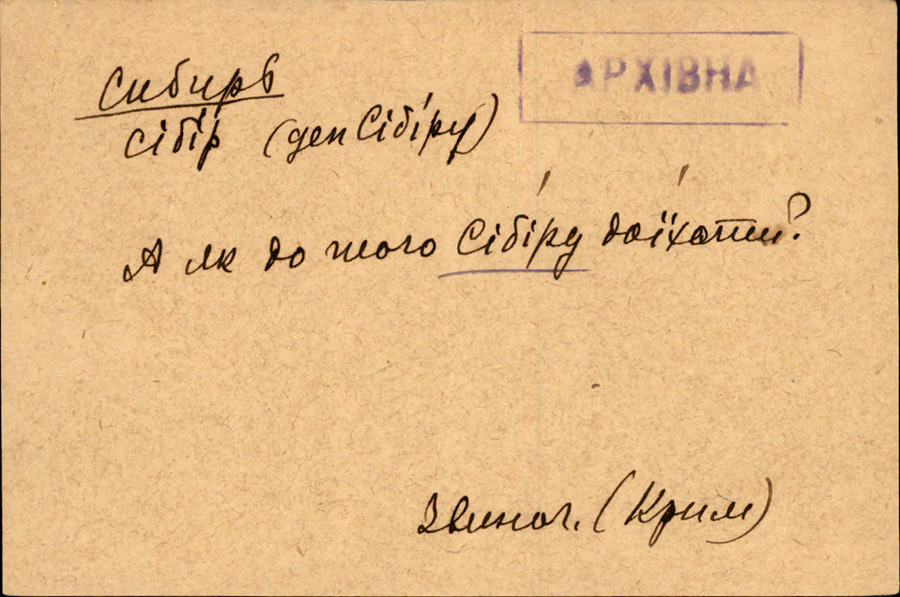 АРХІВНА
Сибирь
сібі́р (ген Сібі́ру)
А як до того Сібі́ру дої́хати?
Звиног. (Крим)